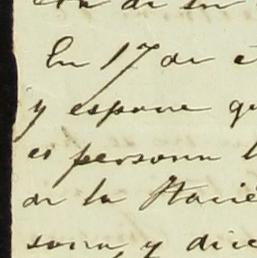 de su
En 17 de e
y espone qu
es persona l
de la Hacié
sona, y dice